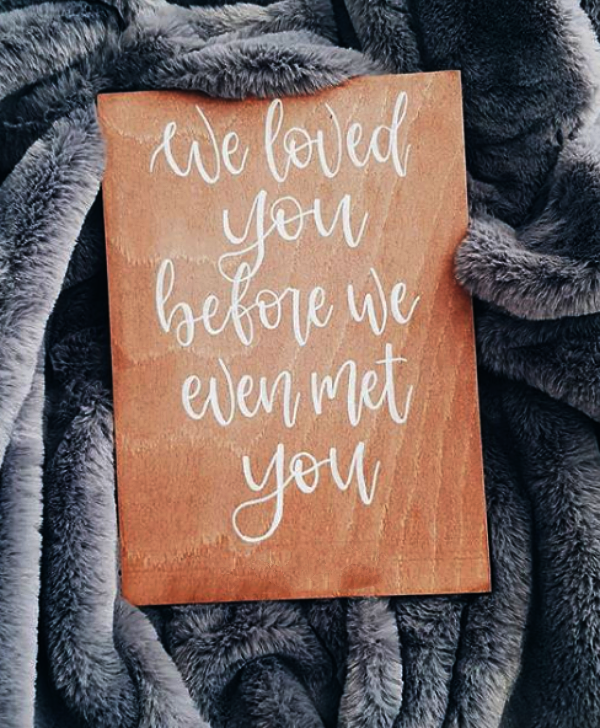 we loved
you
before we
even met
you